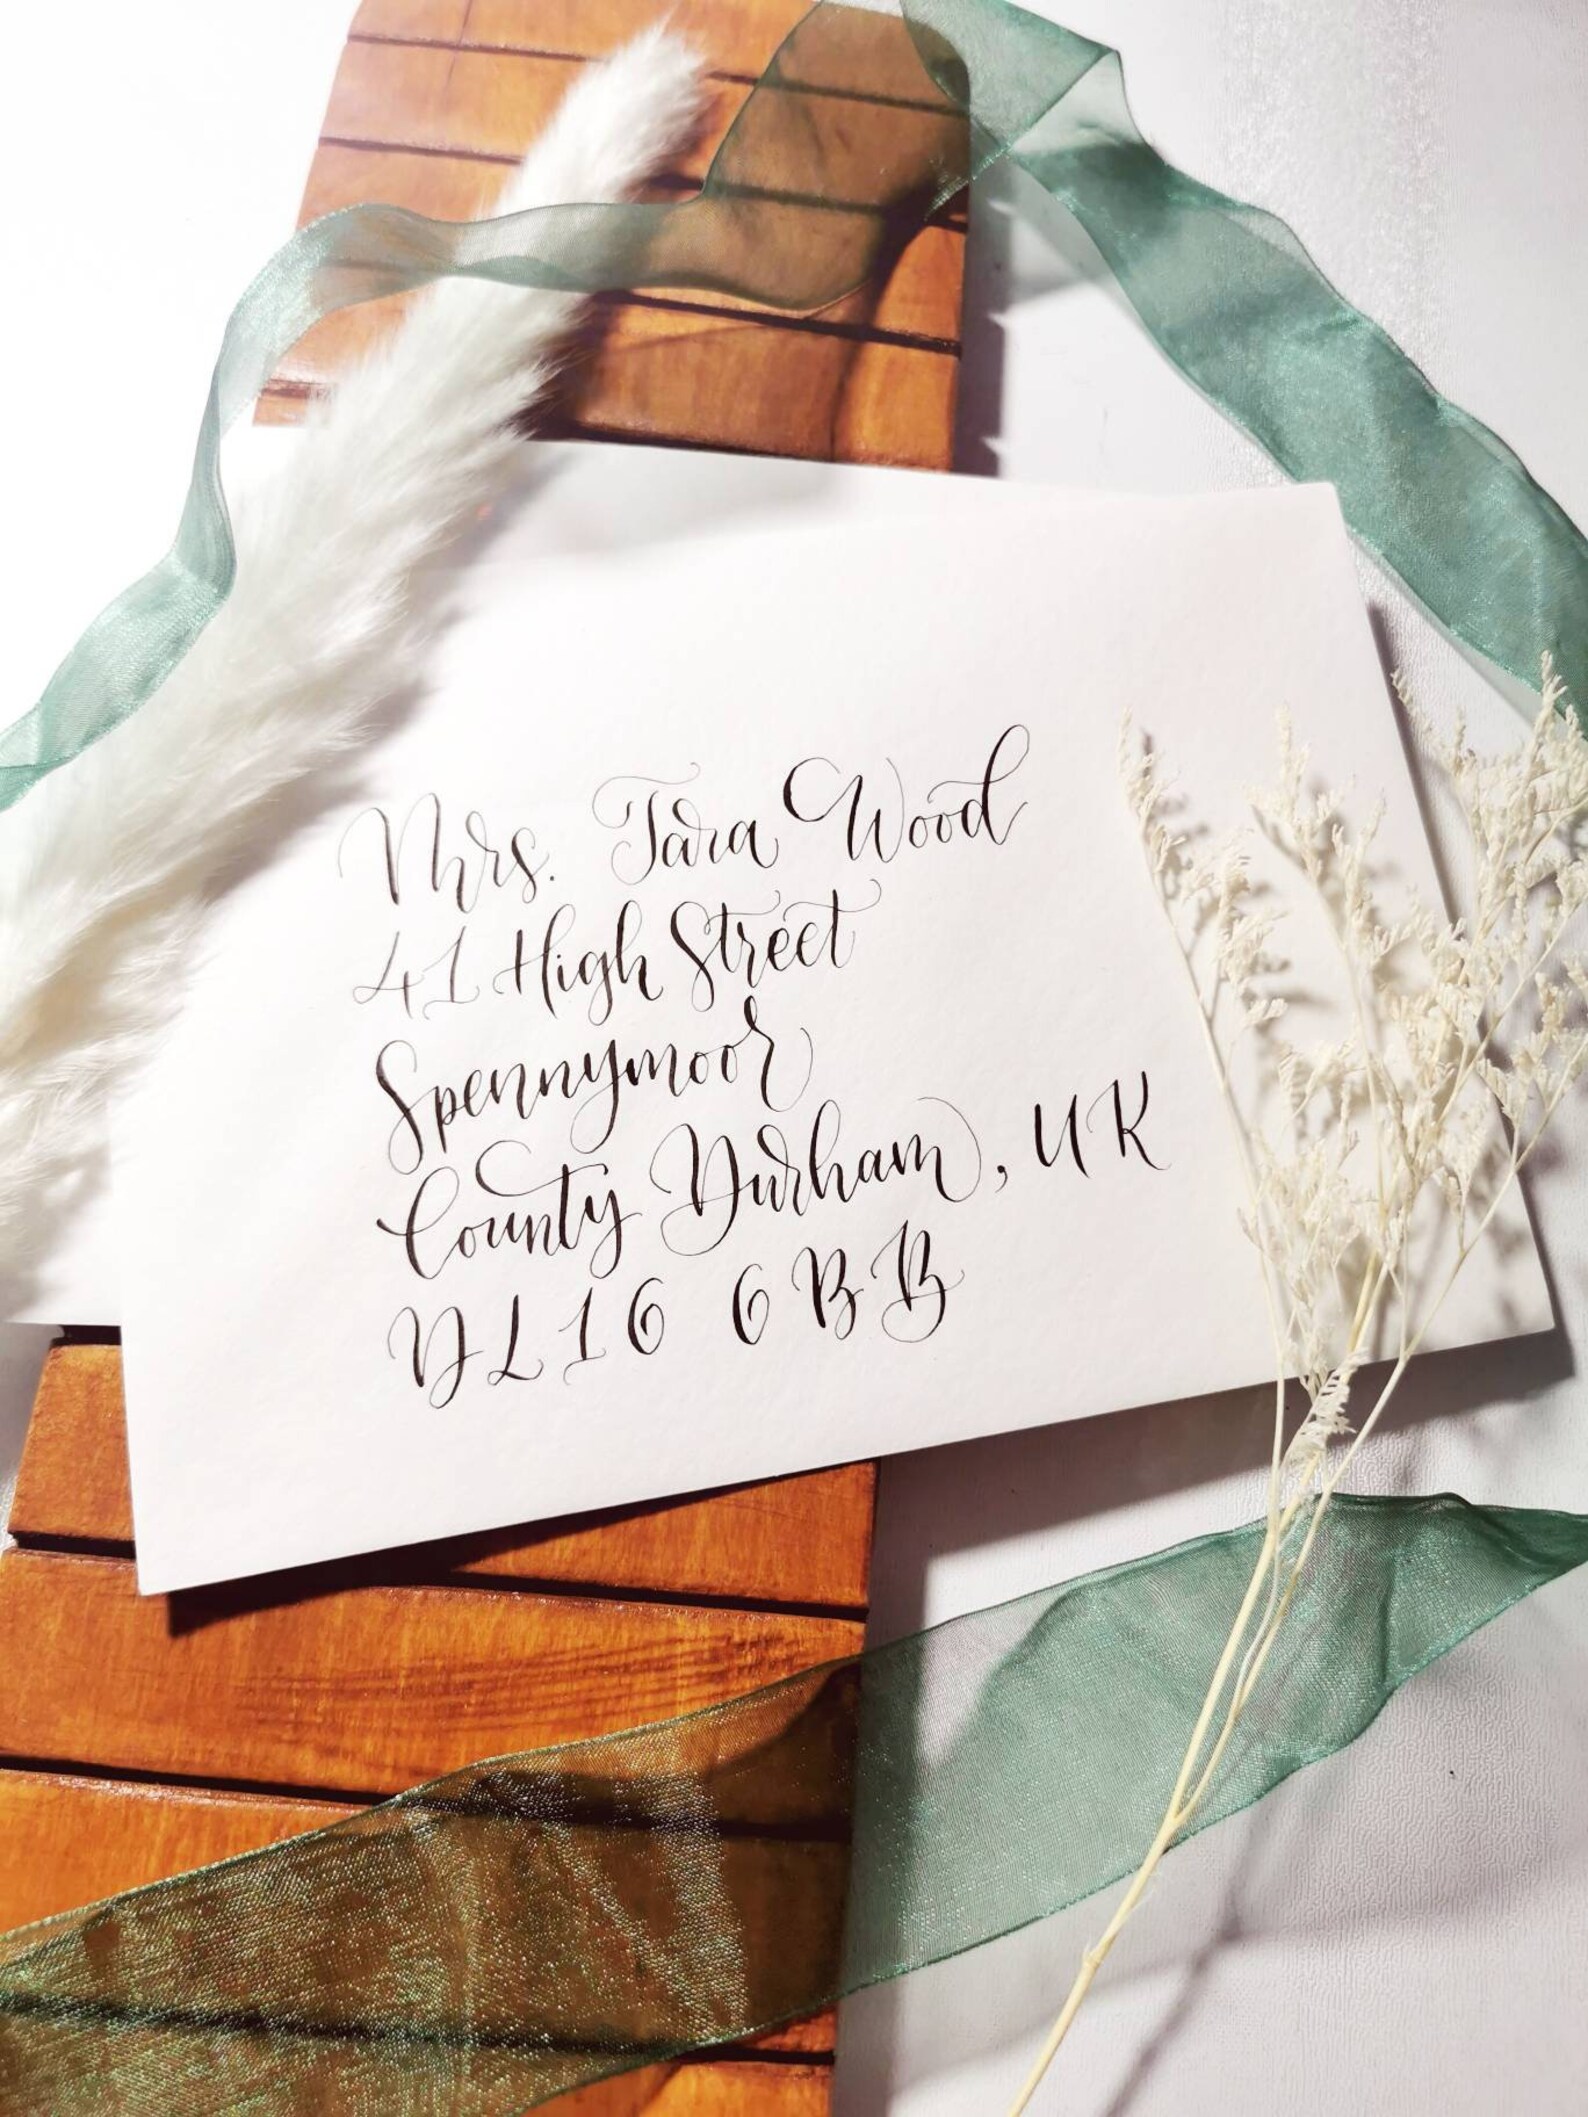 Mrs. Tara Wood
41 High Street
Spennymoor
County Durham, UK
DL16 6BB